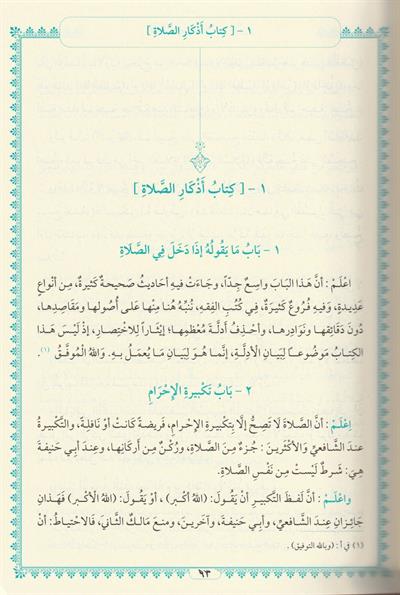 ١ - [ كِتابُ أَذْكارِ الصَّلاةِ ]
١ - [ كِتابُ أَذْكارِ الصَّلاةِ ]
١ - بَابُ مَا يَقُولُهُ إِذَا دَخَلَ فِي الصَّلَاةِ
اعْلَمْ : أنَّ هَذا البَابَ واسِعٌ جِدّاً، وجَاءَتْ فيهِ أحاديثُ صَحيحةٌ كَثيرةٌ، مِن أنْواعٍ
عَديدةٍ، وَفيهِ فُرُوعٌ كَثيرَةٌ، فِي كُتُبِ الفِقهِ، نُنَبِّهُ هُنا مِنْها عَلى أُصُولِها ومَقاصِدِها،
دُونَ دَقائِقِها ونَوادِرِها، وأَحْذِفُ أَدلَّةَ مُعْظَمِها؛ إيثَاراً لِلاخْتِصارِ، إذْ لَيْسَ هَذا
الكِتابُ مَوْضُوعاً لِبَيانِ الأَدِلَّةِ، إنَّما هُوَ لِبَيَانِ مَا يُعْمَلُ بِهِ. وَاللهُ الْمُوفِّقُ (١).
٢ - بَابُ تَكْبِيرةِ الْإِحْرَامِ
اِعْلَمْ : أنَّ الصَّلاةَ لَا تَصِحُّ إلَّا بِتَكْبِيرةِ الإحْرامِ، فَريضَةً كانَتْ أوْ نَافِلةً، والتَّكْبيرةُ
عندَ الشَّافعيِّ والأكْثَرينَ : جُزءٌ مِنَ الصَّلاةِ، ورُكْنٌ مِن أرْكانِها، وعِندَ أبي حَنيفةَ
هِيَ: شَرطٌ لَيْسَتْ مِن نَفْسِ الصَّلاةِ.
واعْلَمْ : أنَّ لَفْظَ التَّكبيرِ أنْ يَقُولَ: (اللهُ أكْبر) ، أوْ يَقُولَ: (اللهُ الْأكْبر) فَهَذانِ
جَائِزانِ عِندَ الشَّافعيِّ، وأبي حَنيفةَ، وآخَرينَ، ومَنعَ مَالكٌ الثَّانيَ، فَالاحْتِياطُ: أنْ
(١) في أ : (وبالله التوفيق) .
٩٣